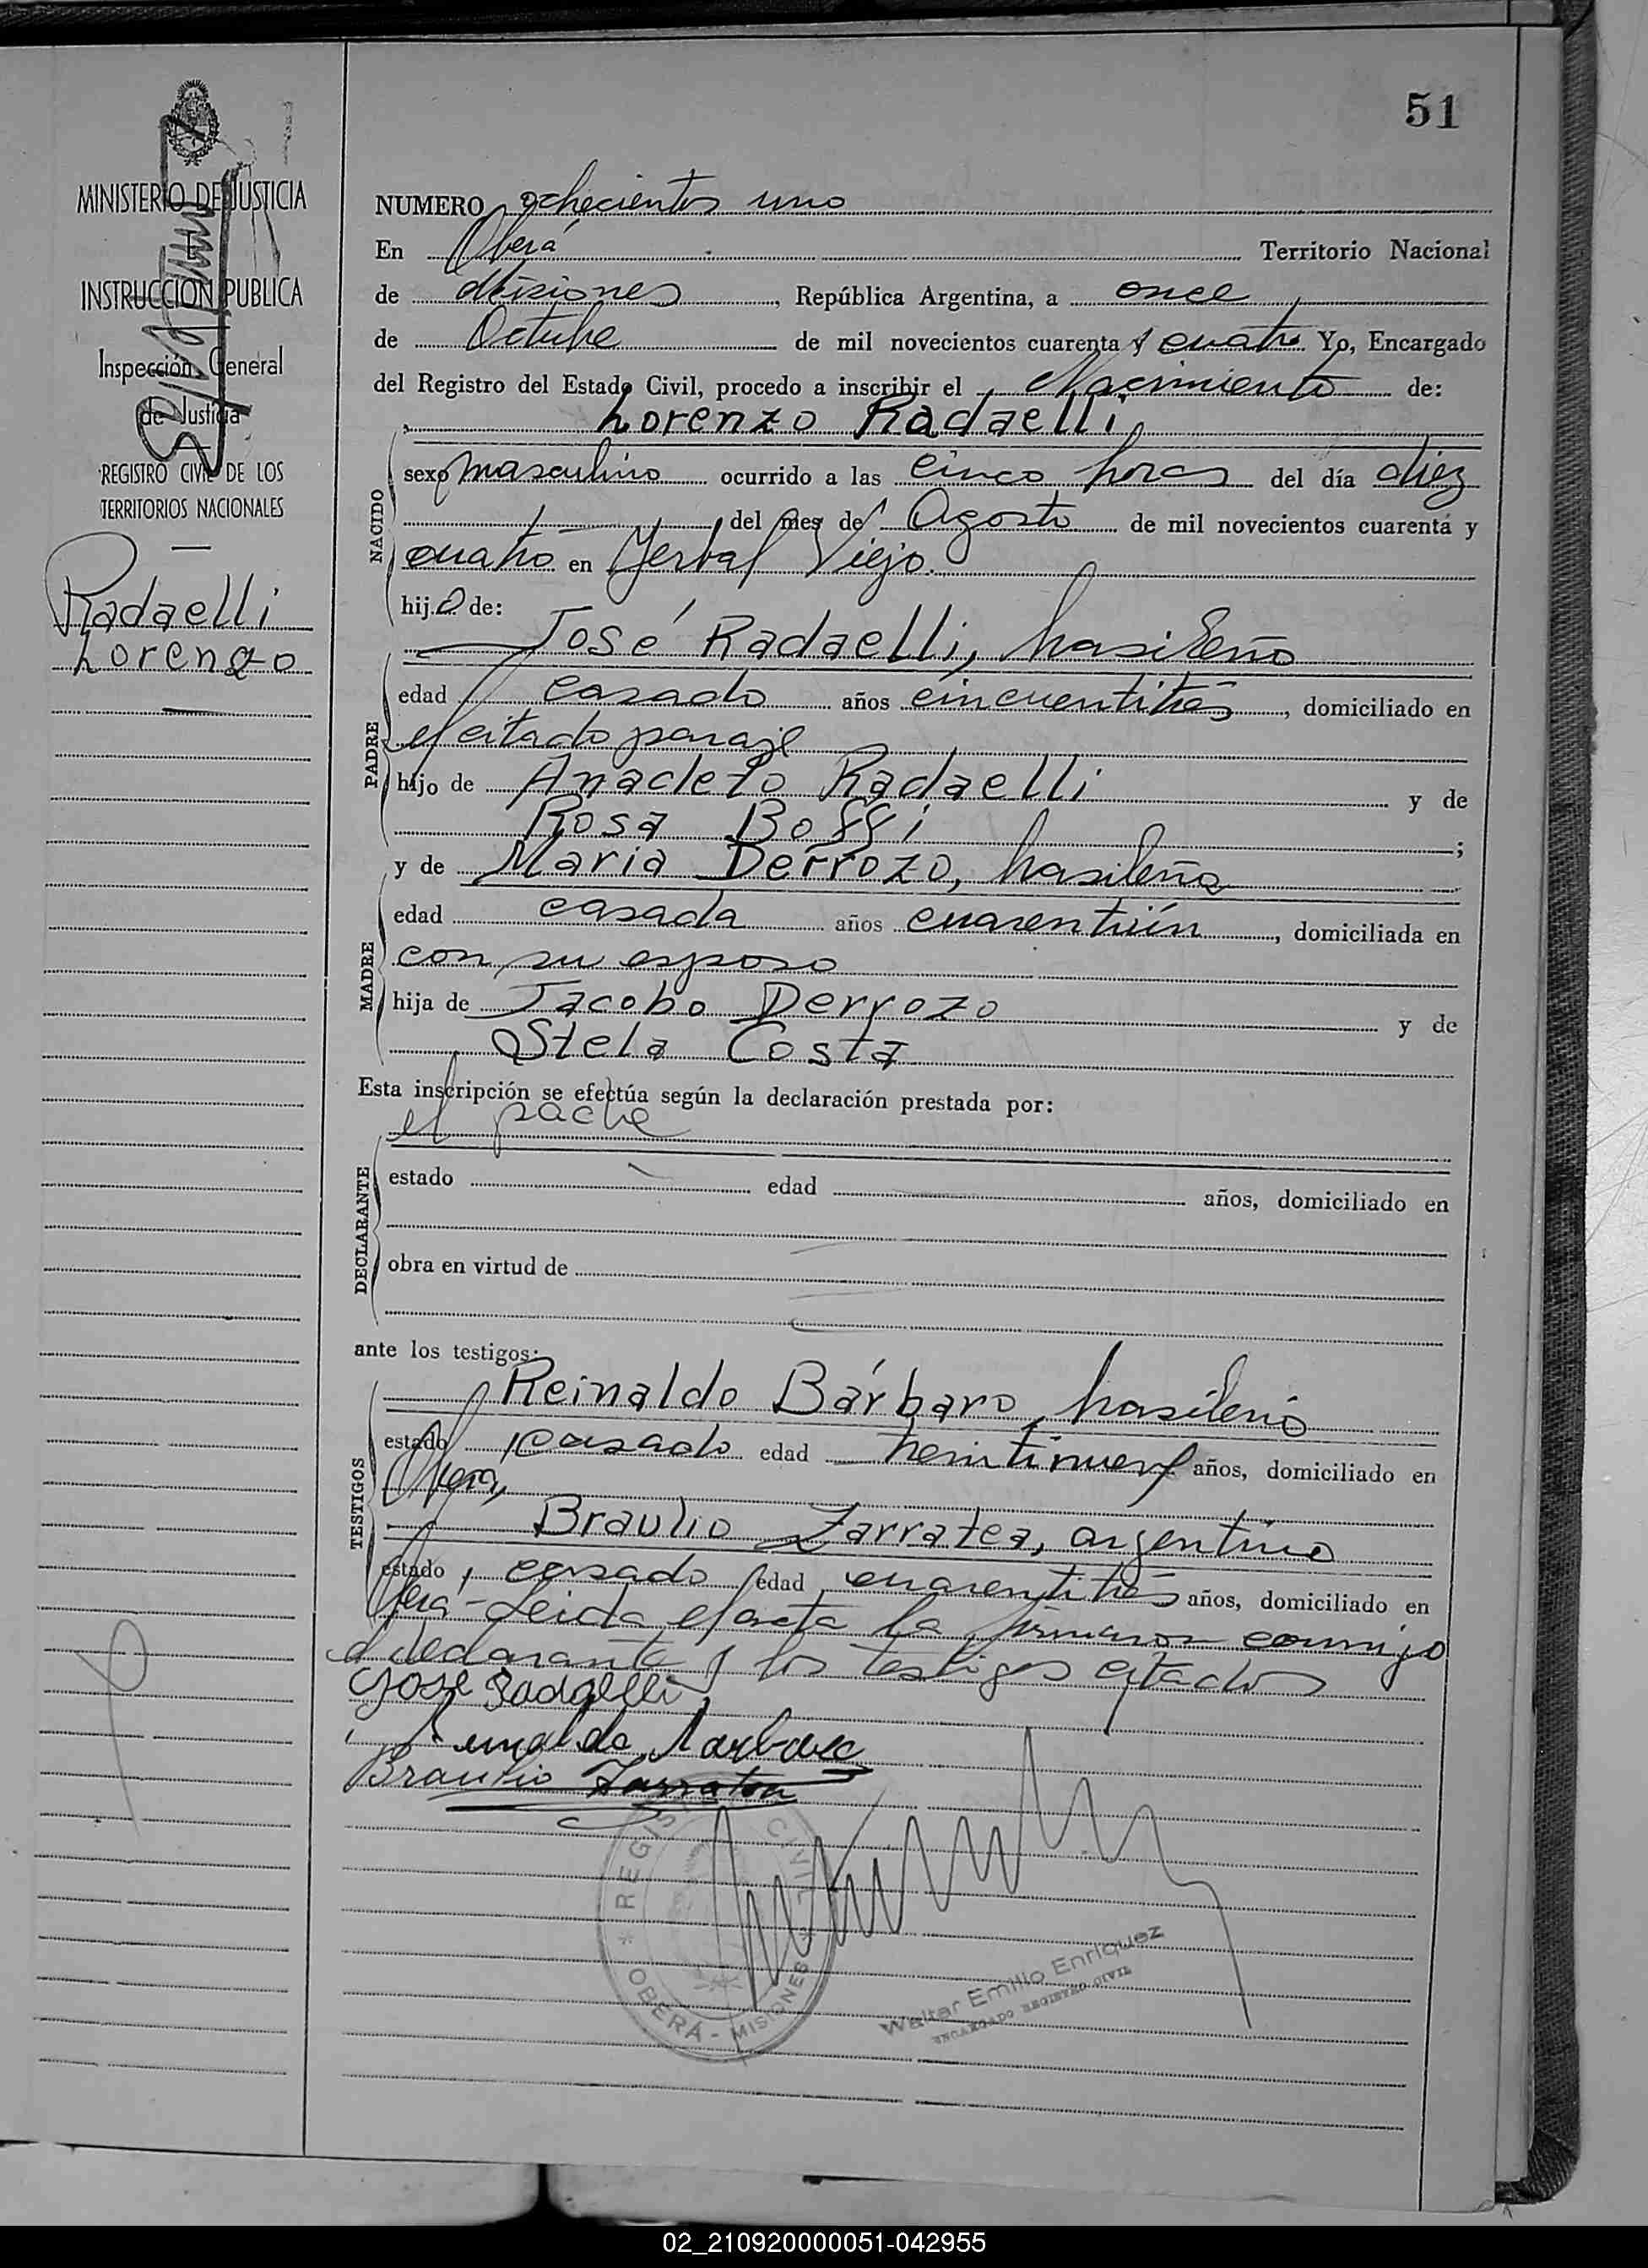 51
MINISTERIO DE JUSTICIA
INSTRUCCION PUBLICA
Inspección General
de Justicia
REGISTRO CIVIL DE LOS
TERRITORIOS NACIONALES
Radaelli
Lorenzo
NUMERO ochocientos uno
En Oberá Territorio Nacional
de Misiones, República Argentina, a once
de Octubre de mil novecientos cuarenta y cuatro Yo, Encargado
del Registro del Estado Civil, procedo a inscribir el Nacimiento de:
Lorenzo Radaelli
NACIDO
sexo masculino ocurrido a las cinco horas del día diez
del mes de Agosto de mil novecientos cuarenta y
cuatro en Yerbal Viejo.
hijo de:
José Radaelli, brasileño
PADRE
edad casado años cincuentitrés, domiciliado en
el citado paraje
hijo de Anacleto Radaelli y de
Rosa Boffi;
y de Maria Derrozo, brasileña
MADRE
edad casada años cuarentiún, domiciliada en
con su esposo
hija de Jacobo Derrozo y de
Stela Costa
Esta inscripción se efectúa según la declaración prestada por:
el padre
DECLARANTE
estado edad años, domiciliado en
obra en virtud de
ante los testigos:
TESTIGOS
Reinaldo Bárbaro, brasileño
estado casado edad treintinueve años, domiciliado en
Oberá,
Braulio Zarratea, argentino
estado, casado edad cuarentitrés años, domiciliado en
Oberá-Leida el acta la firmaron conmigo
el declarante y los testigos citados
José Radaelli
Reinaldo Barbaro
Braulio Zarratea
REGISTRO CIVIL * OBERÁ - MISIONES *
Walter Emilio Enriquez
ENCARGADO REGISTRO CIVIL
02_210920000051-042955